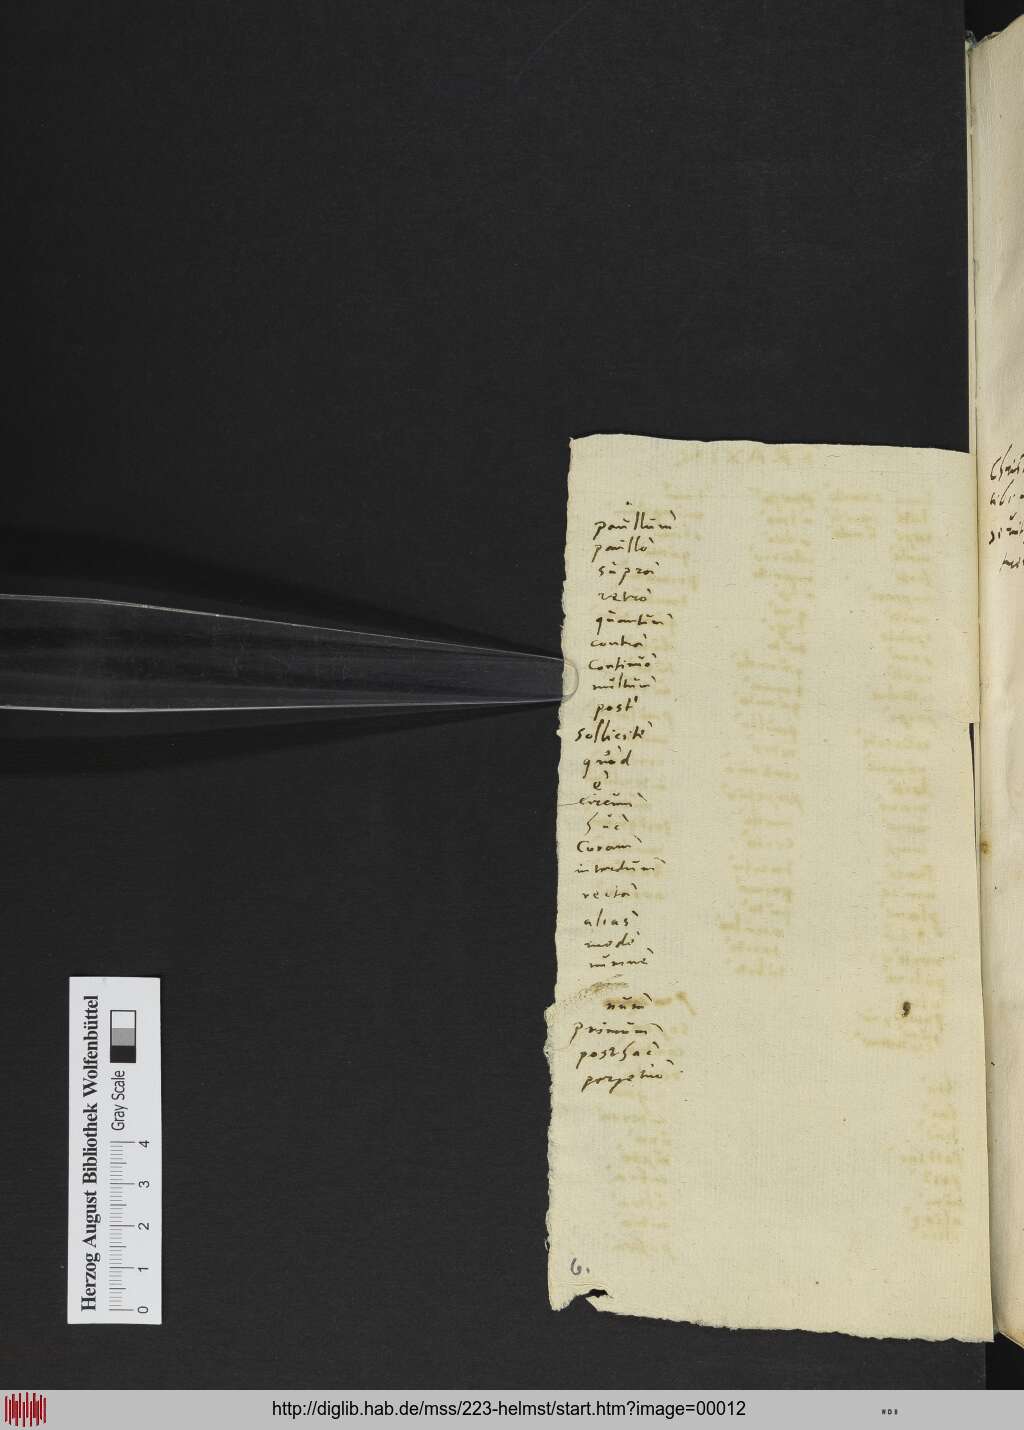 paullùm
paullò
suprà
retrò
quantùm
contrà
Continuò
multùm
post'
sollicitè
quòd
è
circùm
hùc
Coràm
interdùm
rectà
aliàs
modò
nùmnè
nùm
Primùm
posthàc
perpetuò
6.
Herzog August Bibliothek Wolfenbüttel
Gray Scale
0 1 2 3 4
http://diglib.hab.de/mss/223-helmst/start.htm?image=00012